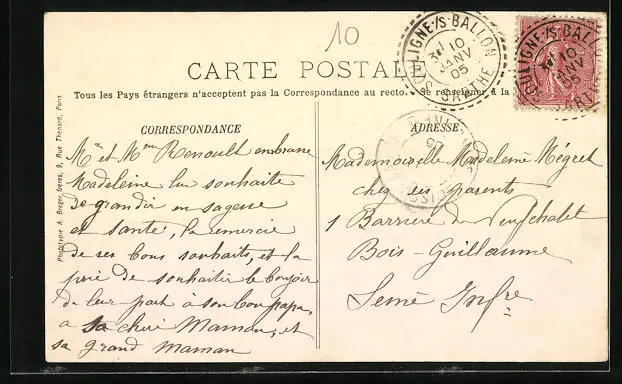 10
CARTE POSTALE
Tous les Pays étrangers n'acceptent pas la Correspondance au recto. Se renseigner à la
CORRESPONDANCE
Mr et Mme Renoult embrasse
Madeleine lui souhaite
de grandir en sagesse
et santé, la remercie
de ses bons souhaits, et la
prie de souhaiter le bonjour
de leur part à son bon papa,
a sa chère Maman, et
sa grand maman
ADRESSE
Mademoiselle Madeleine Négret
chez ses parents
1 Barrière du Neufchatel
Bois-Guillaume
Seine Infre
SOULIGNE-/S-BALLON
3E 10
JANV
05
SARTHE
SOULIGNE-/S-BALLON
3E 10
JANV
05
Phototypie A. Breger frères, 9, Rue Thénard, Paris